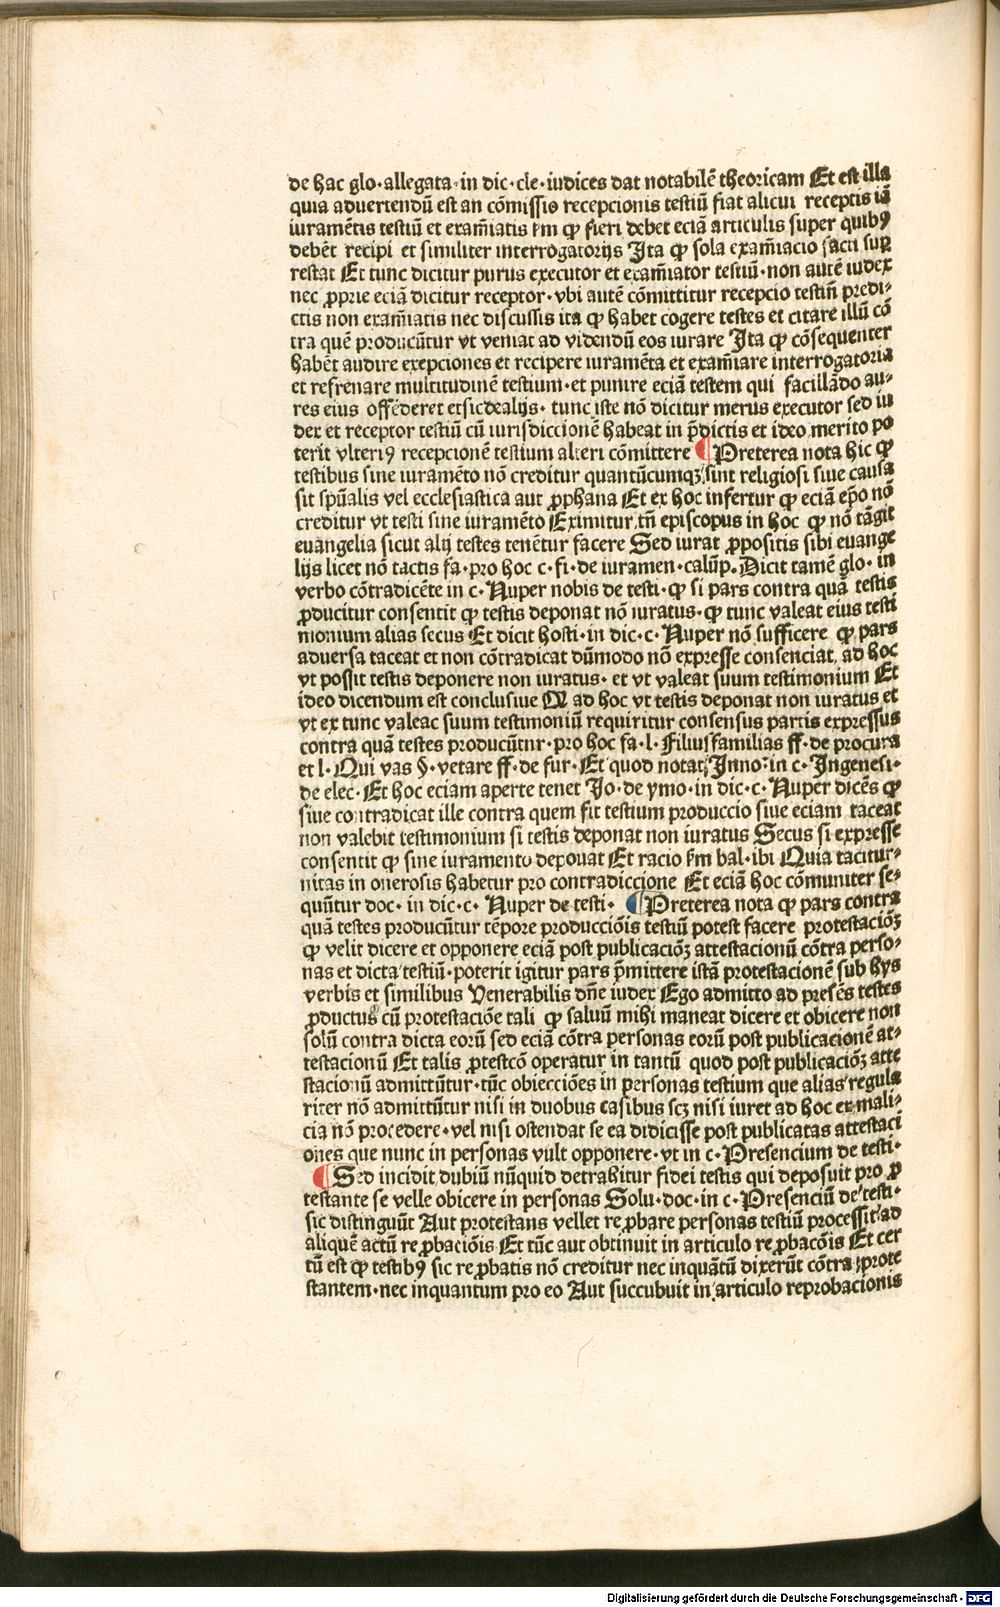 de hac glo· allegata· in dic· cle· iudices dat notabilē theoricam Et est illa
quia aduertendū est an cōmissio recepcionis testiū fiat alicui receptis iā
iuramētis testiū et exam̄iatis km̄ ꝙ fieri debet eciā articulis super quibꝰ
debēt recipi et similiter interrogatorijs Ita ꝙ sola exam̄iacio facti suꝑ
restat Et tunc dicitur purus executor et exam̄iator testiū· non autē iudex
nec ꝓprie eciā dicitur receptor· vbi autē cōmittitur recepcio testiū predi⸗
ctis non exam̄iatis nec discussis ita ꝙ habet cogere testes et citare illū cō
tra quē producūtur vt veniat ad videndū eos iurare Ita ꝙ cōsequenter
habēt audire exepciones et recipere iuramēta et exam̄iare interrogatoria
et refrenare multitudinē testium· et punire eciā testem qui facillādo au⸗
res eius offēderet et sic de alijs· tunc iste nō dicitur merus executor sed iu
dex et receptor testiū cū iurisdiccionē habeat in p̄dictis et ideo merito po
terit vlteriꝰ recepcionē testium alteri cōmittere ¶ Preterea nota hic ꝙ
testibus sine iuramēto nō creditur quantūcumqꝫ sint religiosi siue causa
sit sp̄ualis vel ecclesiastica aut ꝓphana Et ex hoc infertur ꝙ eciā ep̄o nō
creditur vt testi sine iuramēto Eximitur tn̄ episcopus in hoc ꝙ nō tāgit
euangelia sicut alij testes tenētur facere Sed iurat ꝓpositis sibi euange
lijs licet nō tactis fa· pro hoc c· fi· de iuramen· calūp· Dicit tamē glo· in
verbo cōtradicēte in c· Nuper nobis de testi· ꝙ si pars contra quā testis
ꝓducitur consentit ꝙ testis deponat nō iuratus· ꝙ tunc valeat eius testi
monium alias secus Et dicit hosti· in dic· c· Nuper nō sufficere ꝙ pars
aduersa taceat et non cōtradicat dūmodo nō expresse consenciat ad hoc
vt possit testis deponere non iuratus· et vt valeat suum testimonium Et
ideo dicendum est conclusiue Qꝫ ad hoc vt testis deponat non iuratus et
vt ex tunc valeac suum testimoniū requiritur consensus partis expressus
contra quā testes producūtur· pro hoc fa· l· Filiusfamilias ff· de procura
et l· Qui vas §· vetare ff· de fur· Et quod notatꝫ Inno· in c· Ingenesi·
de elec· Et hoc eciam aperte tenet Jo· de ymo· in dic· c· Nuper dicēs ꝙ
siue contradicat ille contra quem fit testium produccio siue eciam taceat
non valebit testimonium si testis deponat non iuratus Secus si expresse
consentit ꝙ sine iuramento depouat Et racio km̄ bal· ibi Quia tacitur⸗
nitas in onerosis habetur pro contradiccione Et eciā hoc cōmuniter se⸗
quūtur doc· in dic· c· Nuper de testi· ¶ Preterea nota ꝙ pars contra
quā testes producūtur tēpore producciōis testiū potest facere protestaciōꝫ
ꝙ velit dicere et opponere eciā post publicaciōꝫ attestacionū cōtra perso⸗
nas et dicta testiū· poterit igitur pars p̄mittere istā protestacionē sub hys
verbis et similibus Venerabilis dn̄e iudex Ego admitto ad presēs testes
ꝓductus cū protestaciōe tali ꝙ saluū mihi maneat dicere et obicere non
solū contra dicta eorū sed eciā cōtra personas eorū post publicacionē at⸗
testacionū Et talis ꝓtestcō operatur in tantū quod post publicaciōꝫ atte
stacionū admittūtur· tūc obiecciōes in personas testium que alias regula
riter nō admittūtur nisi in duobus casibus scꝫ nisi iuret ad hoc ex mali⸗
cia nō procedere· vel nisi ostendat se ea didicisse post publicatas attestaci
ones que nunc in personas vult opponere· vt in c· Presencium de testi·
¶ Sed incidit dubiū nūquid detrahitur fidei testis qui deposuit pro ꝓ
testante se velle obicere in personas Solu· doc· in c· Presenciū de testi·
sic distinguūt Aut protestans vellet reꝓbare personas testiū processit ad
aliquē actū reꝓbaciōis Et tūc aut obtinuit in articulo reꝓbacōis Et cer
tū est ꝙ testibꝰ sic reꝓbatis nō creditur nec inquātū dixerūt cōtra prote
stantem· nec inquantum pro eo Aut succubuit in articulo reprobacionis
Digitalisierung gefördert durch die Deutsche Forschungsgemeinschaft - DFG